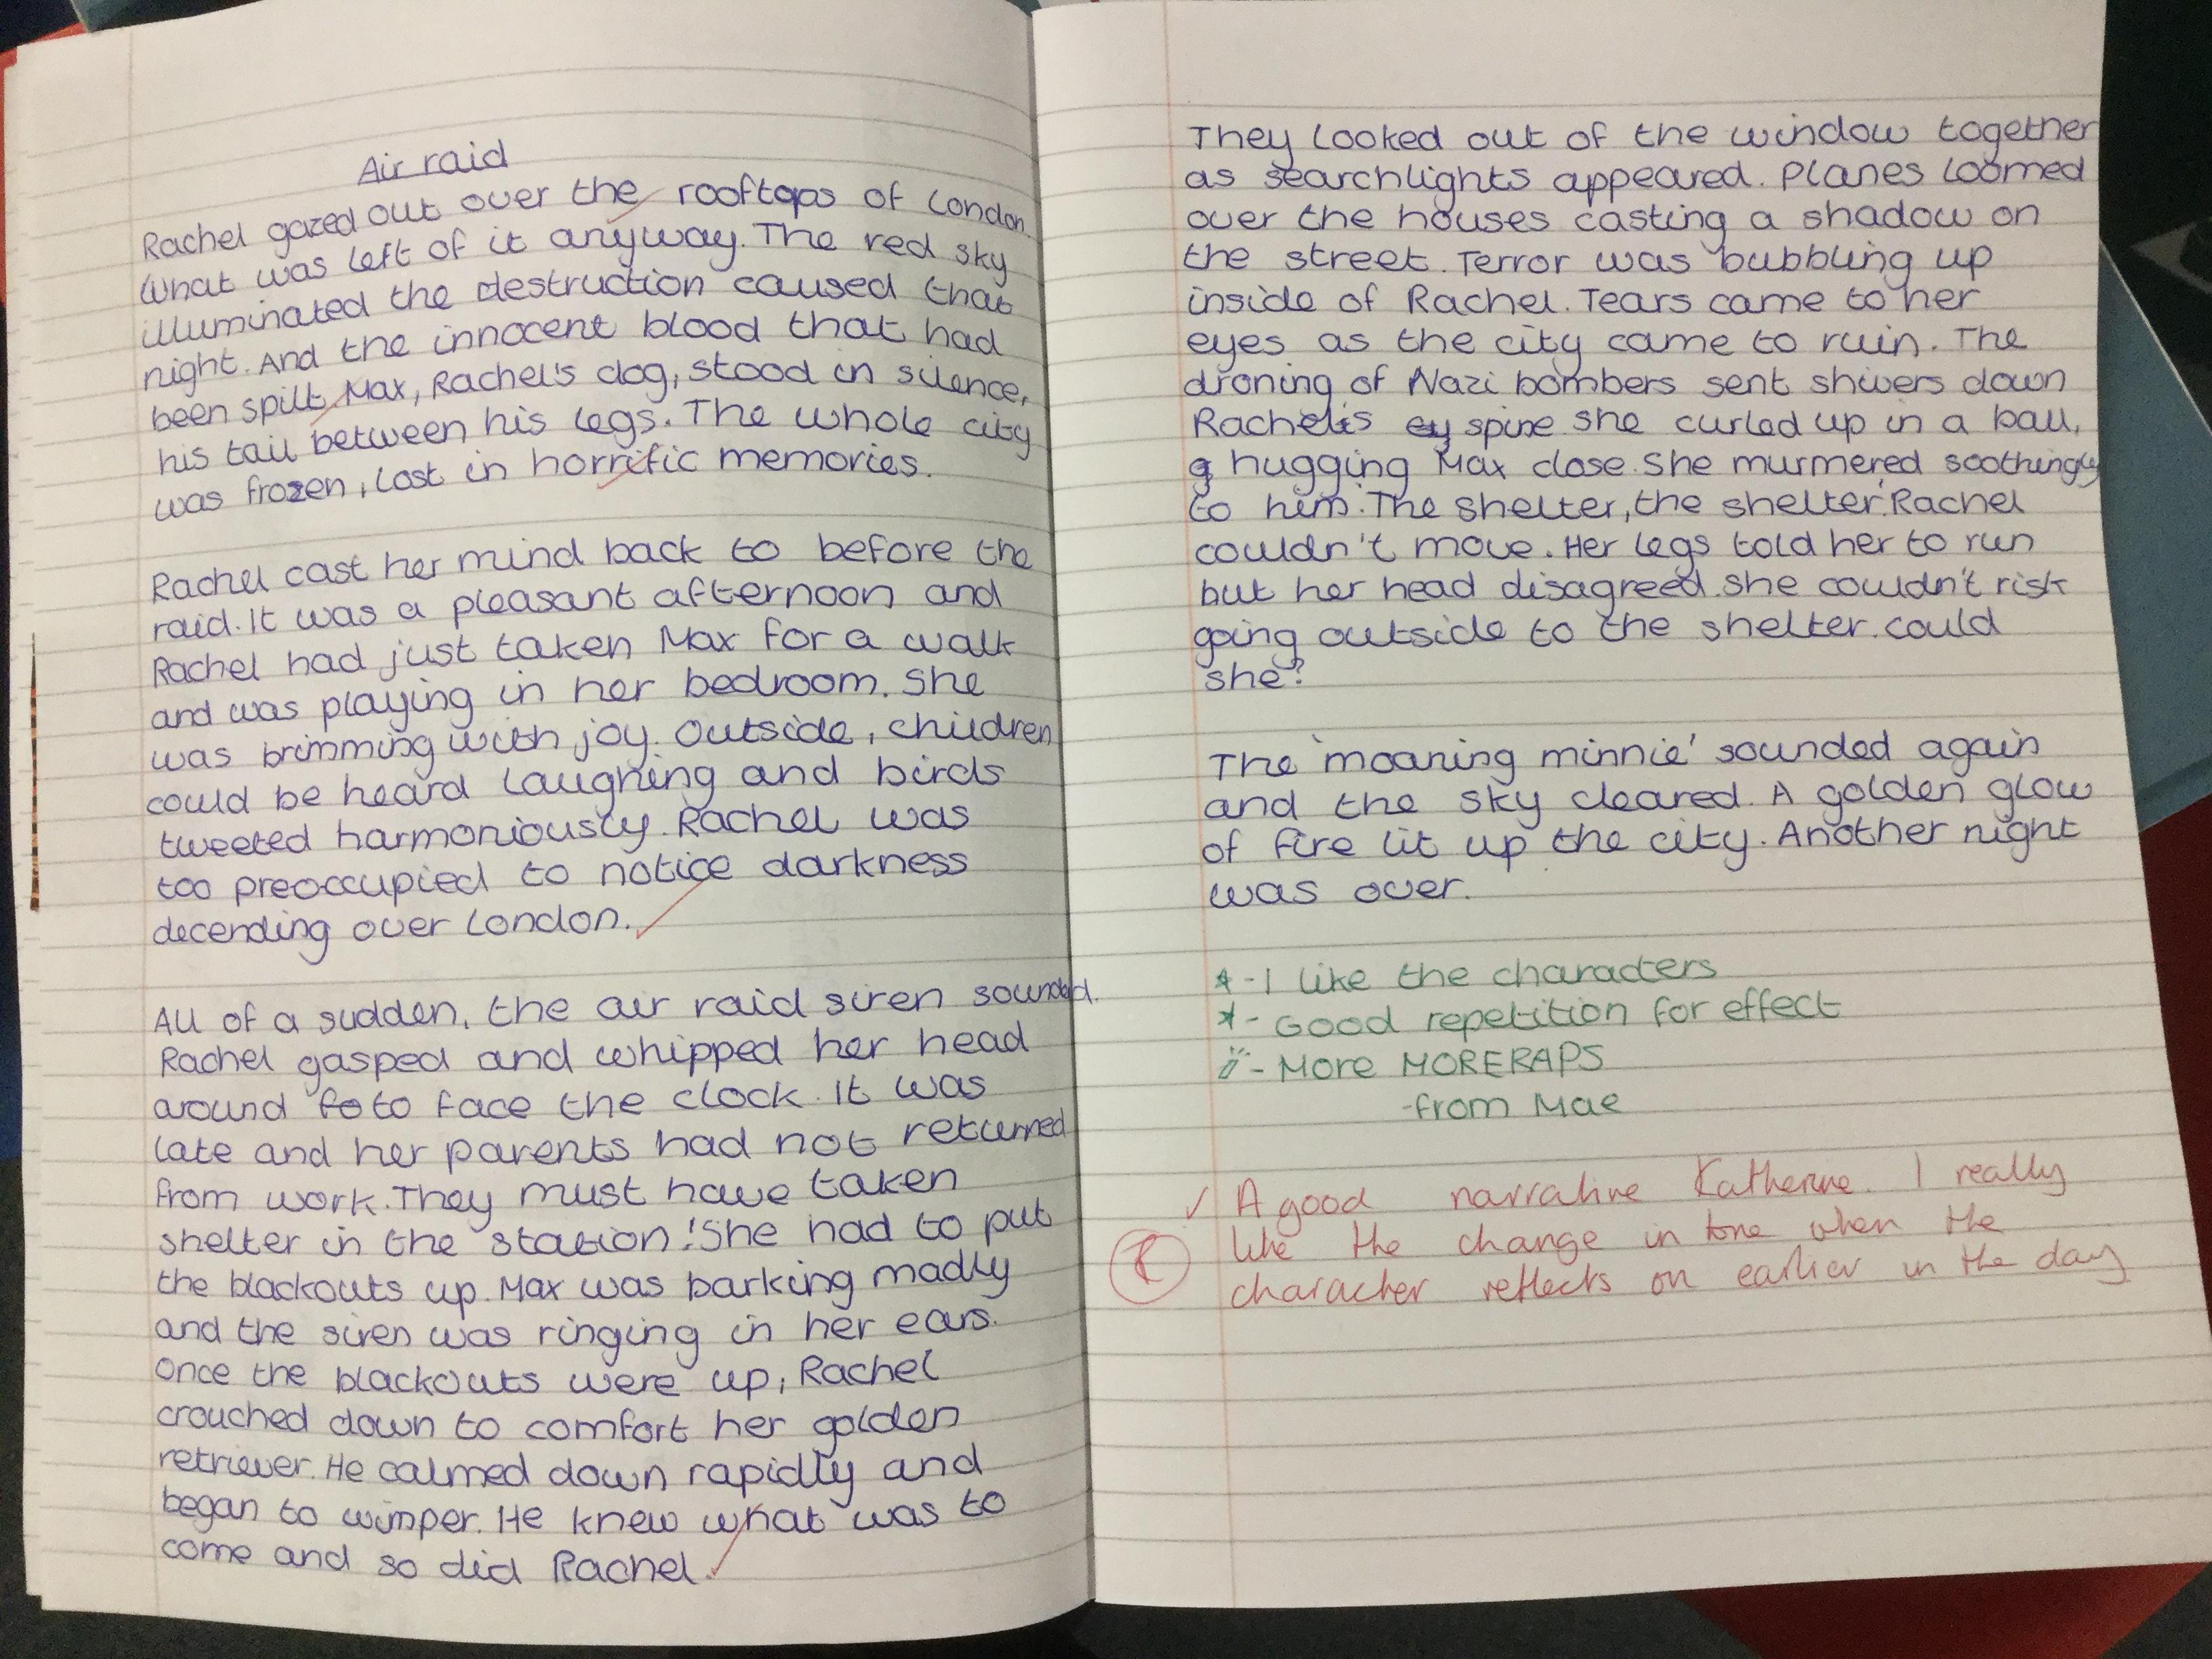 Air raid
Rachel gazed out over the rooftops of London.
What was left of it anyway. The red sky
illuminated the destruction caused that
night. And the innocent blood that had
been spilt. Max, Rachel's dog, stood in silence,
his tail between his legs. The whole city
was frozen, lost in horrific memories.
Rachel cast her mind back to before the
raid. It was a pleasant afternoon and
Rachel had just taken Max for a walk
and was playing in her bedroom. She
was brimming with joy. Outside, children
could be heard laughing and birds
tweeted harmoniously. Rachel was
too preoccupied to notice darkness
decending over London.
All of a sudden, the air raid siren sounded.
Rachel gasped and whipped her head
around fo to face the clock. It was
late and her parents had not returned
from work. They must have taken
shelter in the station! She had to put
the blackouts up. Max was barking madly
and the siren was ringing in her ears.
Once the blackouts were up, Rachel
crouched down to comfort her golden
retriever. He calmed down rapidly and
began to wimper. He knew what was to
come and so did Rachel.
They looked out of the window together
as searchlights appeared. Planes loomed
over the houses casting a shadow on
the street. Terror was bubbling up
inside of Rachel. Tears came to her
eyes as the city came to ruin. The
droning of Nazi bombers sent shivers down
Rachel's ey spine she curled up in a ball,
g hugging Max close. She murmered soothingly
to him. 'The shelter, the shelter.' Rachel
couldn't move. Her legs told her to run
but her head disagreed. She couldn't risk
going outside to the shelter. could
she?
The 'moaning minnie' sounded again
and the sky cleared. A golden glow
of fire lit up the city. Another night
was over.
- I like the characters
- Good repetition for effect
- More MORERAPS
-from Mae
A good narrative Katherine. I really
like the change in tone when the
character reflects on earlier in the day